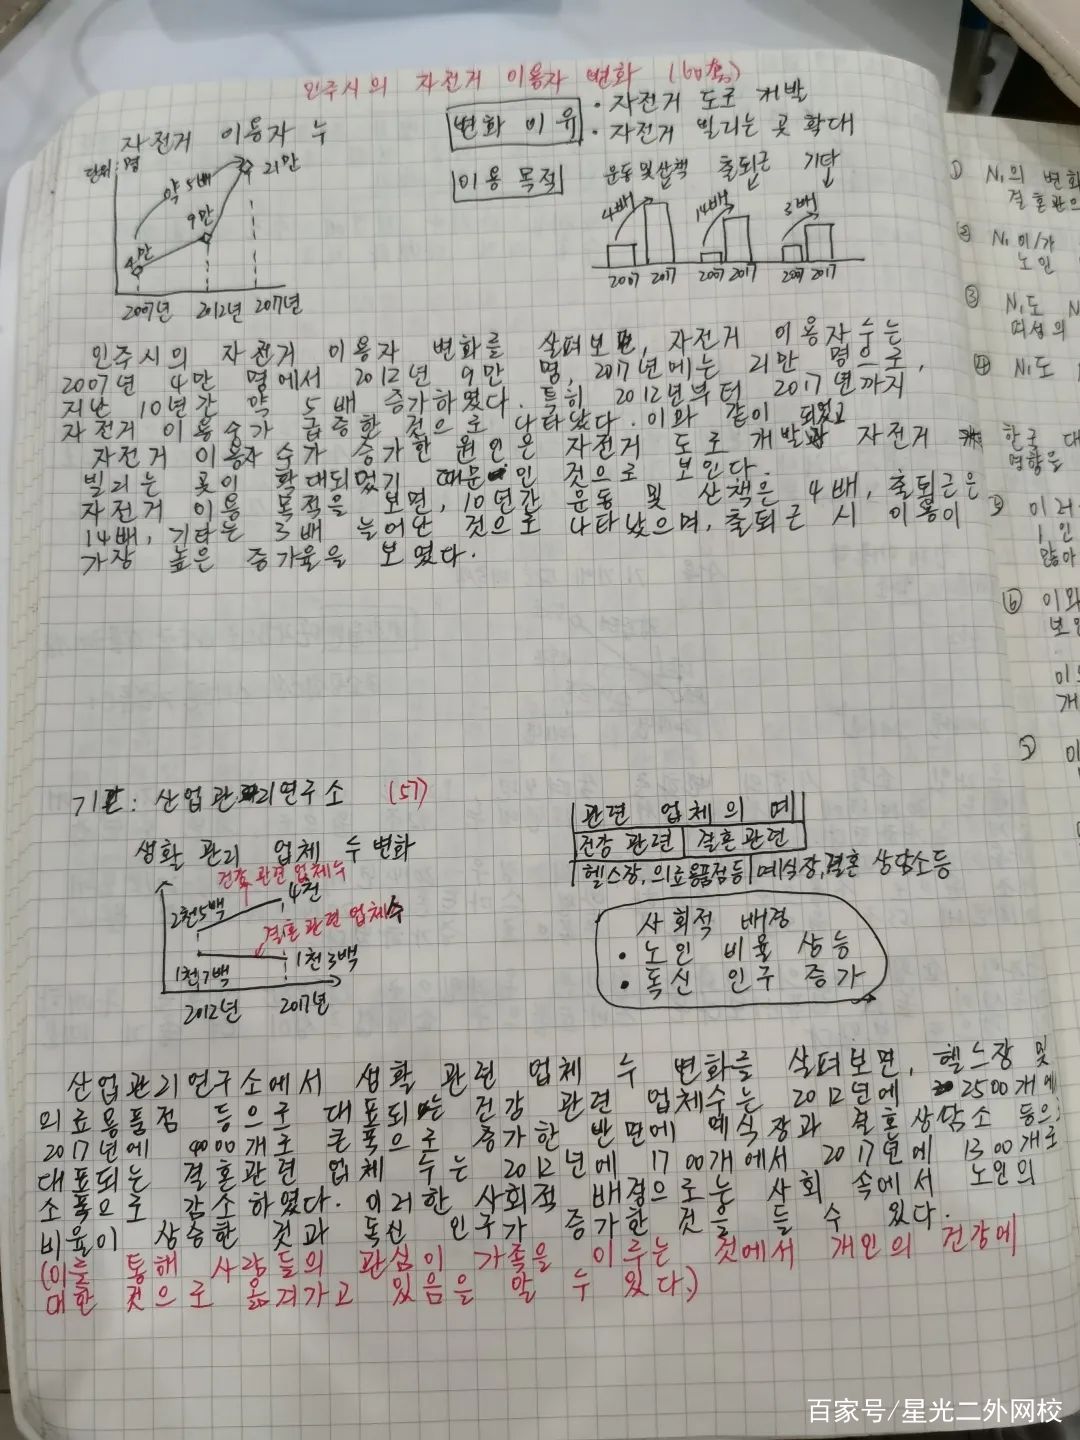 인주시의 자전거 이용자 변화 (60초)
자전거 이용자 수
단위:명
약 5배
4만
9만
21만
2007년 2012년 2017년
변화 이유
· 자전거 도로 개발
· 자전거 빌리는 곳 확대
이용 목적
운동 및 산책 출퇴근 기타
4배 14배 3배
2007 2017 2007 2017 2007 2017
인주시의 자전거 이용자 변화를 살펴보면, 자전거 이용자 수는
2007년 4만 명에서 2012년 9만 명, 2017년에는 21만 명으로,
지난 10년간 약 5배 증가하였다. 특히 2012년부터 2017년까지
자전거 이용수가 급증한 것으로 나타났다. 이와 같이
되었고
자전거 이용자 수가 증가한 원인은 자전거 도로 개발 자전거
빌리는 곳이 확대되었기 때문인 것으로 보인다.
자전거 이용 목적을 보면, 10년간 운동 및 산책은 4배, 출퇴근은
14배, 기타는 3배 늘어난 것으로 나타났으며, 출퇴근 시 이용이
가장 높은 증가율을 보였다.
기관: 산업관리연구소 (57)
생활 관리 업체 수 변화
건강 관련 업체수
2천5백
4천
결혼 관련 업체수
1천7백
1천3백
2012년 2017년
관련 업체의 예
건강 관련 결혼 관련
헬스장, 의료용품점 등 예식장, 결혼 상담소 등
사회적 배경
· 노인 비율 상승
· 독신 인구 증가
산업관리연구소에서 생활 관련 업체 수 변화를 살펴보면, 헬스장 및
의료용품점 등으로 대표되는 건강 관련 업체수는 2012년에 2500개에
2017년에 4000개로 큰폭으로 증가한 반면에 예식장과 결혼상담소 등으
대표되는 결혼관련 업체 수는 2012년에 1700개에서 2017년에 1300개로
소폭으로 감소하였다. 이러한 사회적 배경으로는 사회 속에서 노인의
비율이 상승한 것과 독신 인구가 증가한 것을 들 수 있다.
(이를 통해 사람들의 관심이 가족을 이루는 것에서 개인의 건강에
대한 것으로 옮겨가고 있음을 알 수 있다.)
① N₁의 변화
결혼관의
② N₁이/가
노인
③ N₁도 N
여성의
④ N₁도
한국 대
영향을
⑤ 이러
1인
많아
⑥ 이와
보인
百家号/星光二外网校